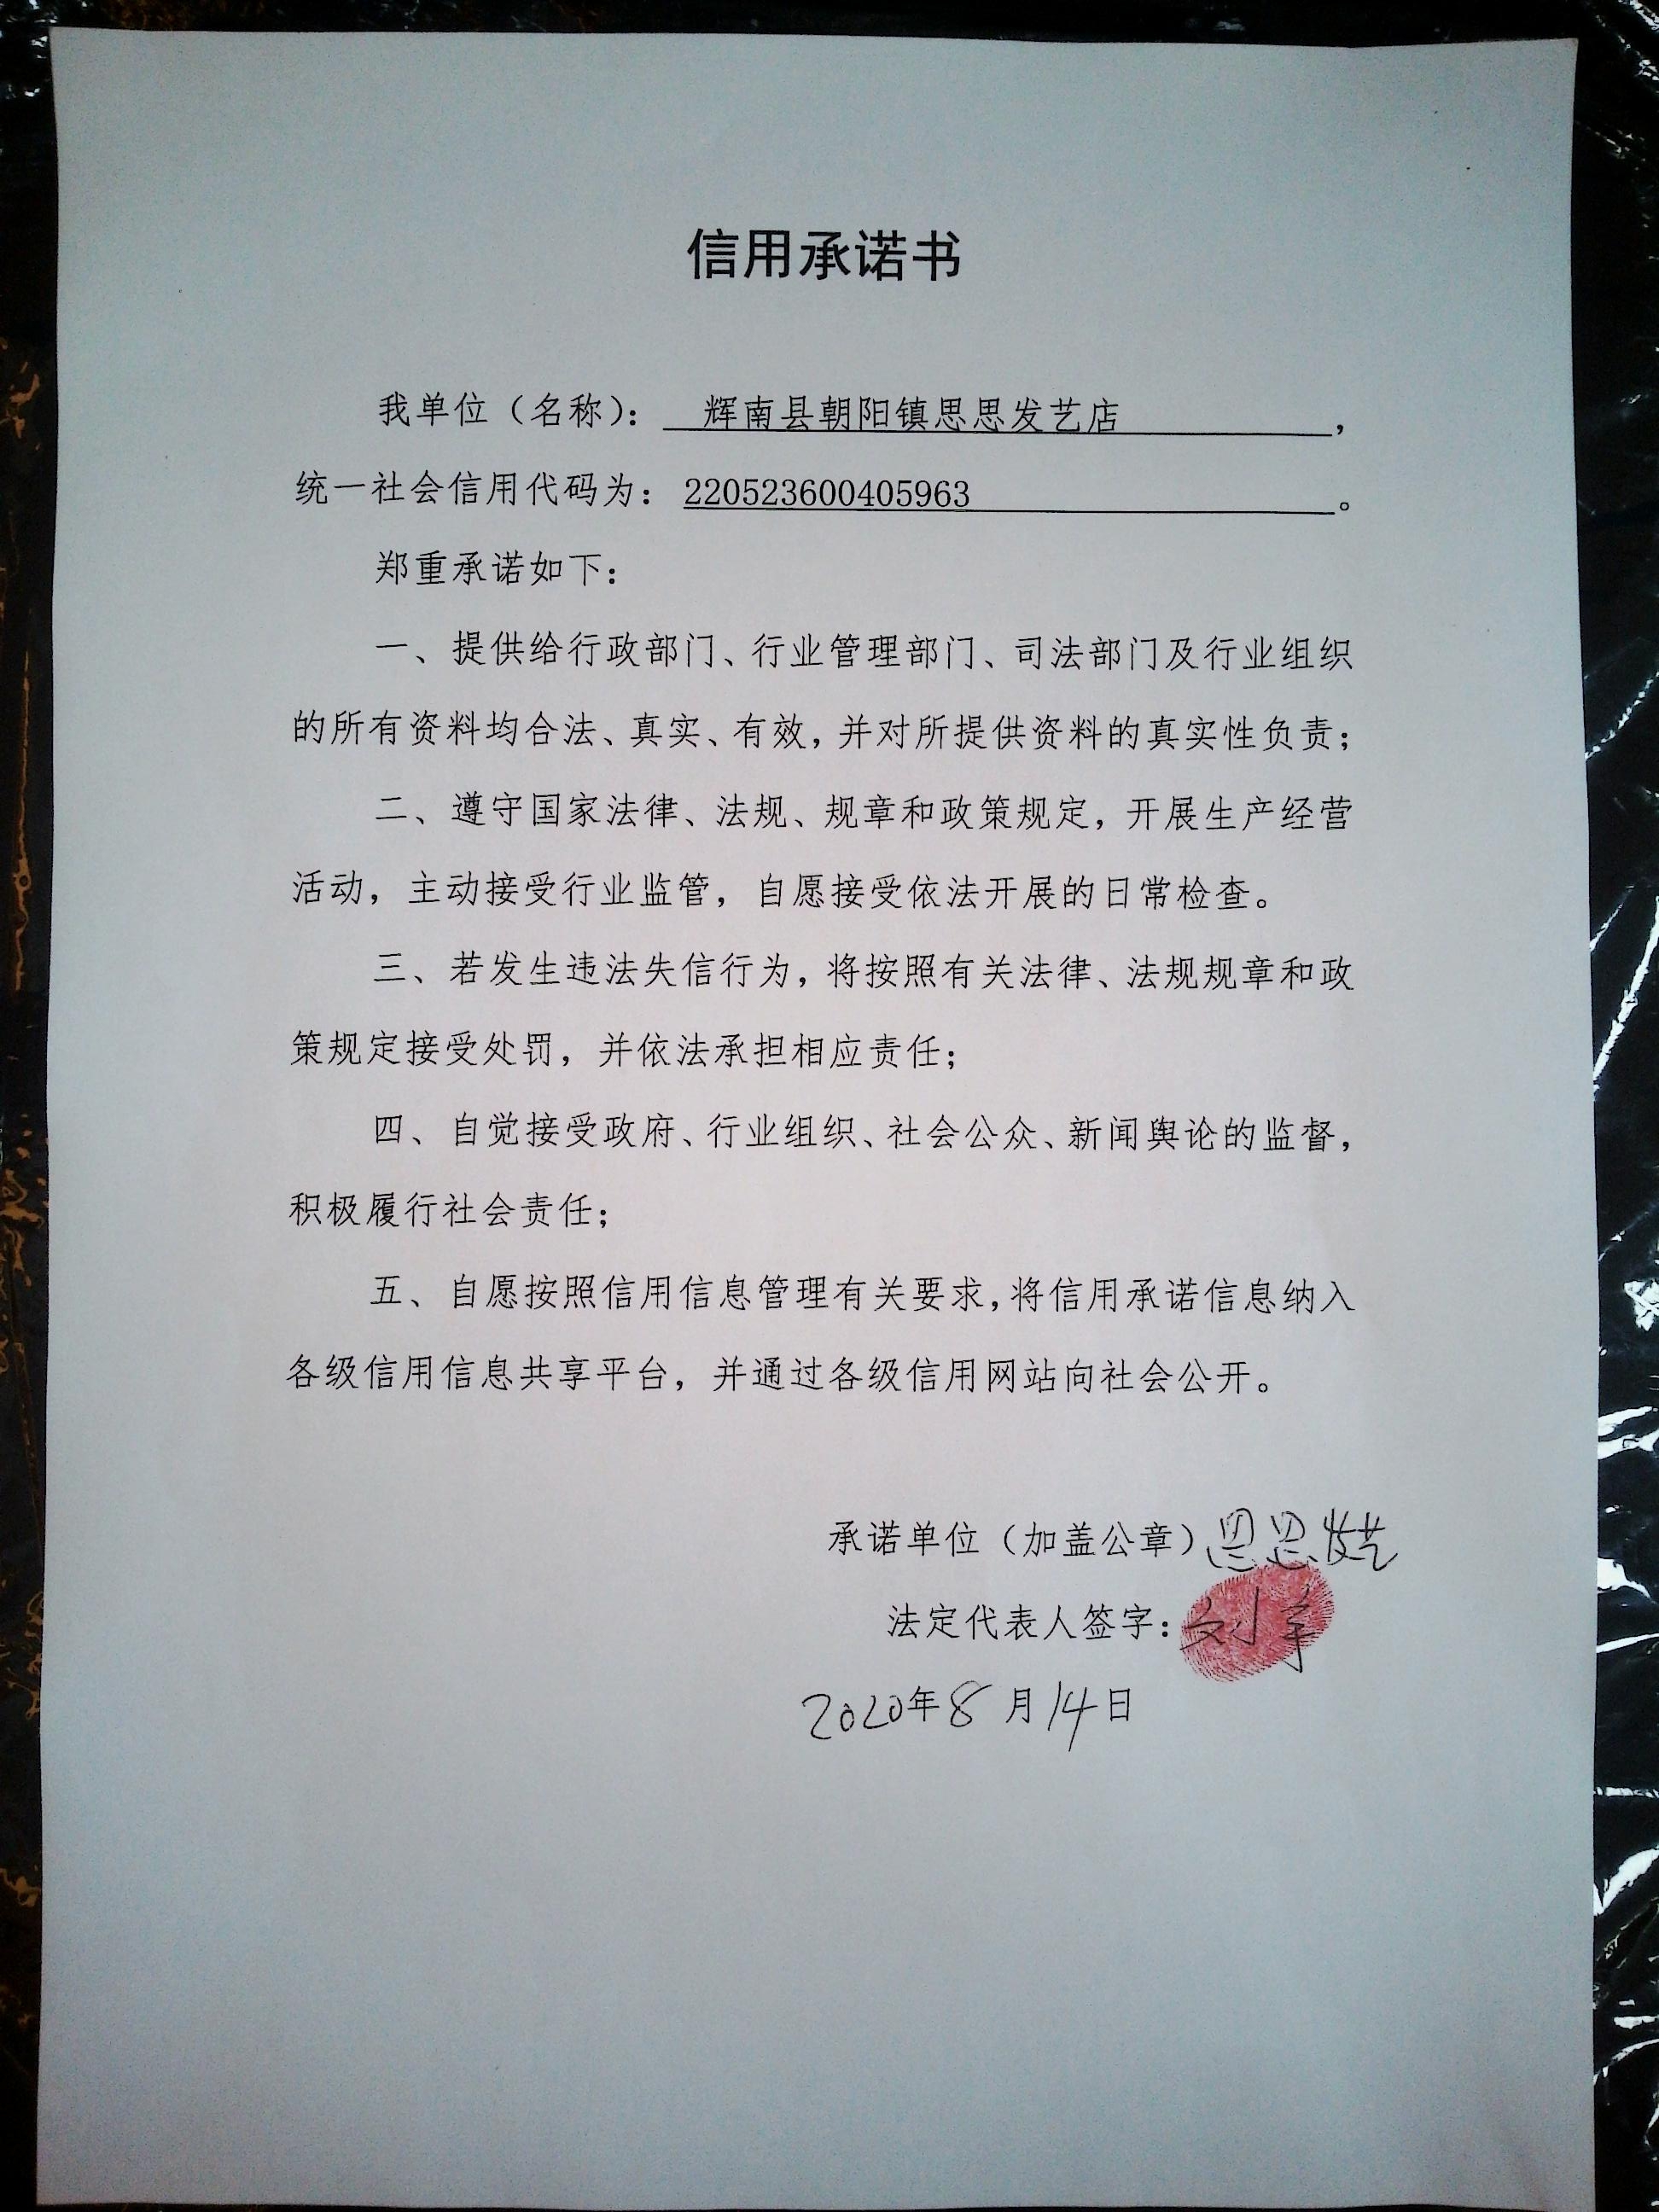 信用承诺书
我单位（名称）： 辉南县朝阳镇思思发艺店 ，
统一社会信用代码为：220523600405963 。
郑重承诺如下：
一、提供给行政部门、行业管理部门、司法部门及行业组织
的所有资料均合法、真实、有效，并对所提供资料的真实性负责；
二、遵守国家法律、法规、规章和政策规定，开展生产经营
活动，主动接受行业监管，自愿接受依法开展的日常检查。
三、若发生违法失信行为，将按照有关法律、法规规章和政
策规定接受处罚，并依法承担相应责任；
四、自觉接受政府、行业组织、社会公众、新闻舆论的监督，
积极履行社会责任；
五、自愿按照信用信息管理有关要求，将信用承诺信息纳入
各级信用信息共享平台，并通过各级信用网站向社会公开。
承诺单位（加盖公章）思思发艺
法定代表人签字：刘羊
2020年8月14日